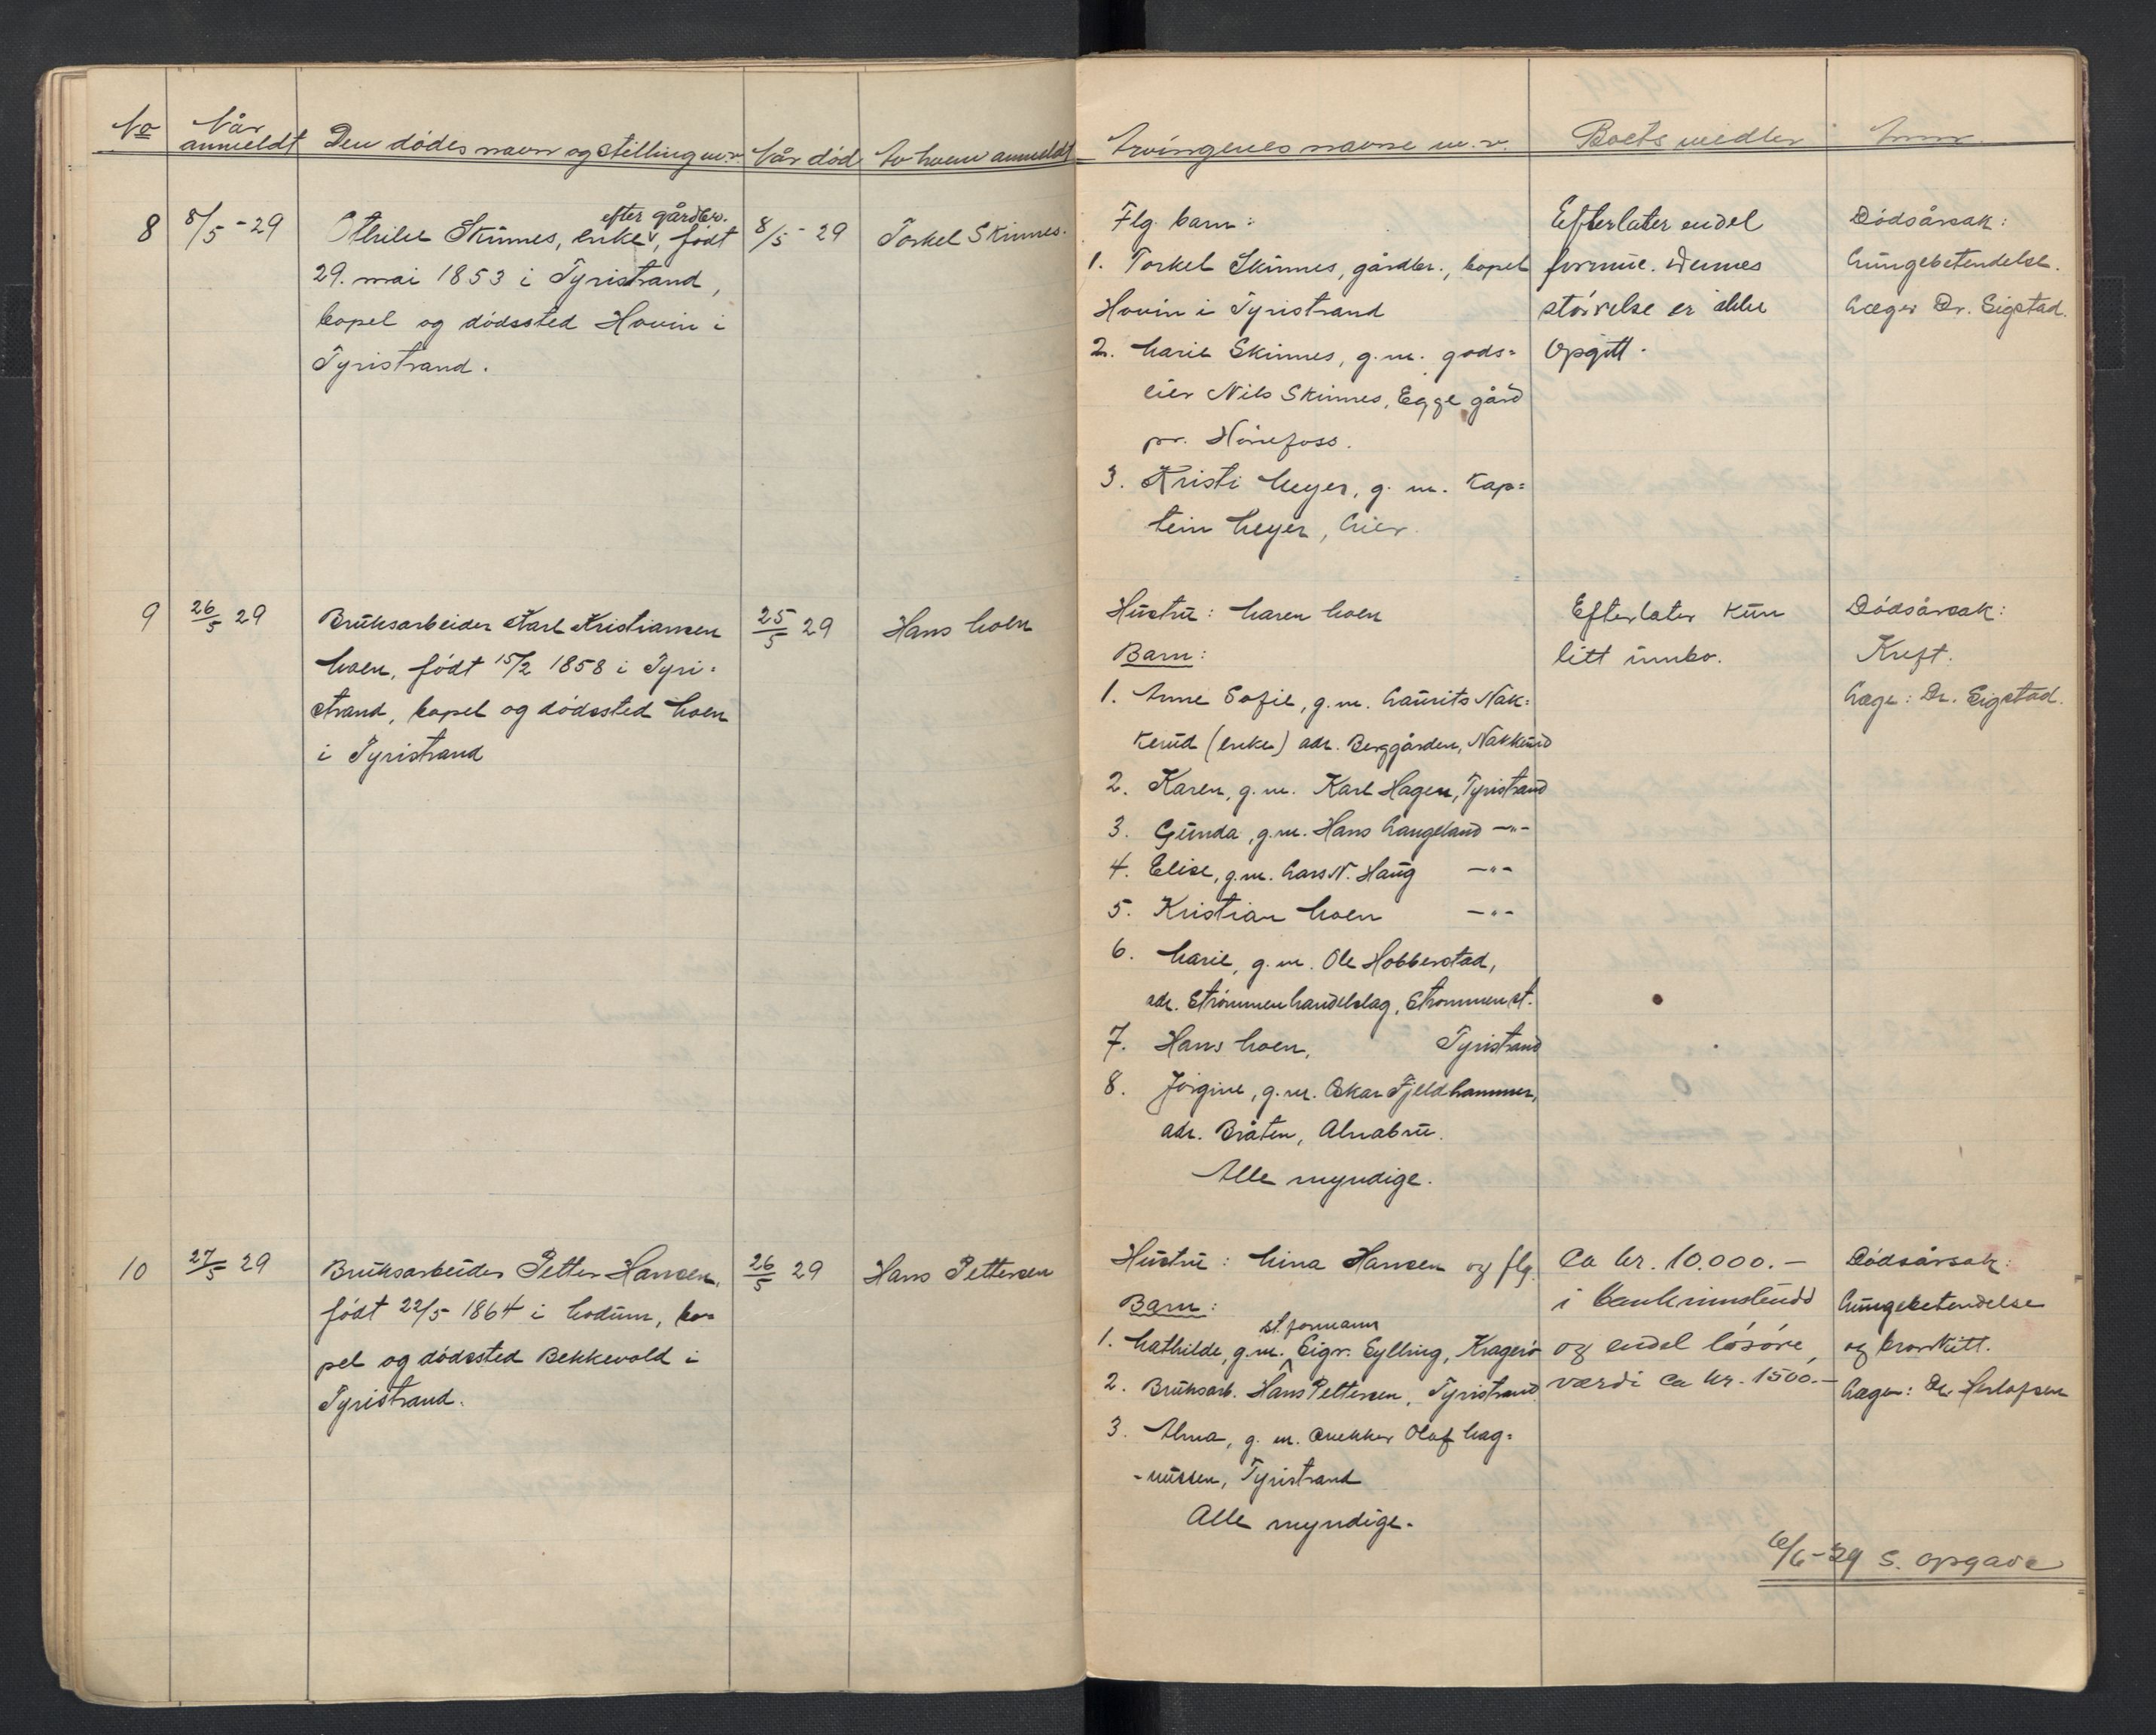 No
Når anmeldt
Den dødes navn og stilling m.v.
Når død
Av hvem anmeldt
Arvingenes navne m.v.
Boets midler
Anm.
8
8/5 - 29
efter gårdbr.
Othilie Skinnes, enke, født
29. mai 1853 i Tyristrand,
bopel og dødssted Hovin i
Tyristrand.
8/5 - 29
Torkel Skinnes.
Flg. barn:
1. Torkel Skinnes, gårdbr., bopel
Hovin i Tyristrand
2. Marie Skinnes, g.m. gods=
eier Nils Skinnes, Egge gård
pr. Hönefoss.
3. Kristi Meyer, g.m. Kap=
tein Meyer, hier.
Efterlater endel
formue. Dennes
störrelse er ikke
opgitt.
Dödsårsak:
Lungebetendelse.
Læge: Dr. Sigstad.
9
26/5 29
Bruksarbeider Karl Kristiansen
Moen, født 15/2 1858 i Tyri=
strand, bopel og dødssted Moen
i Tyristrand
25/5 29
Hans Moen
Hustru: Maren Moen
Barn:
1. Anne Sofie, g.m. Laurits Nak=
kerud (enke) adr. Berggården, Nakkerud
2. Karen, g.m. Karl Hagen, Tyristrand
3. Gunda, g.m. Hans Langeland —"—
4. Elise, g.m. Lars N. Haug —"—
5. Kristian Moen —"—
6. Marie, g.m. Ole Hobberstad,
adr. Strömmen handelslag, Strömmen st.
7. Hans Moen, Tyristrand
8. Jörgine, g.m. Oskar Fjeldhammer,
adr. Bråten, Alnabru.
Alle myndige.
Efterlater kun
litt innbo.
Dödsårsak:
Kreft.
Læge: Dr. Sigstad.
10
27/5 29
Bruksarbeider Petter Hansen,
født 22/5 1864 i Modum, bo=
pel og dødssted Bekkevold i
Tyristrand.
26/5 29
Hans Pettersen
Hustru: Mina Hansen og flg.
Barn:
st. formann
1. Mathilde, g.m. Sigv. Eylling, Kragerö
2. Bruksarb. Hans Pettersen, Tyristrand
3. Alma, g.m. snekker Olaf Mag=
-nussen, Tyristrand
Alle myndige.
Ca kr. 10.000.-
i bankinnskudd
og endel lösöre,
værdi ca kr. 1500.-
Dödsårsak:
Lungebetendelse
og bronkitt.
Læge: Dr. Herlofsen
6/6-29 S. opgave